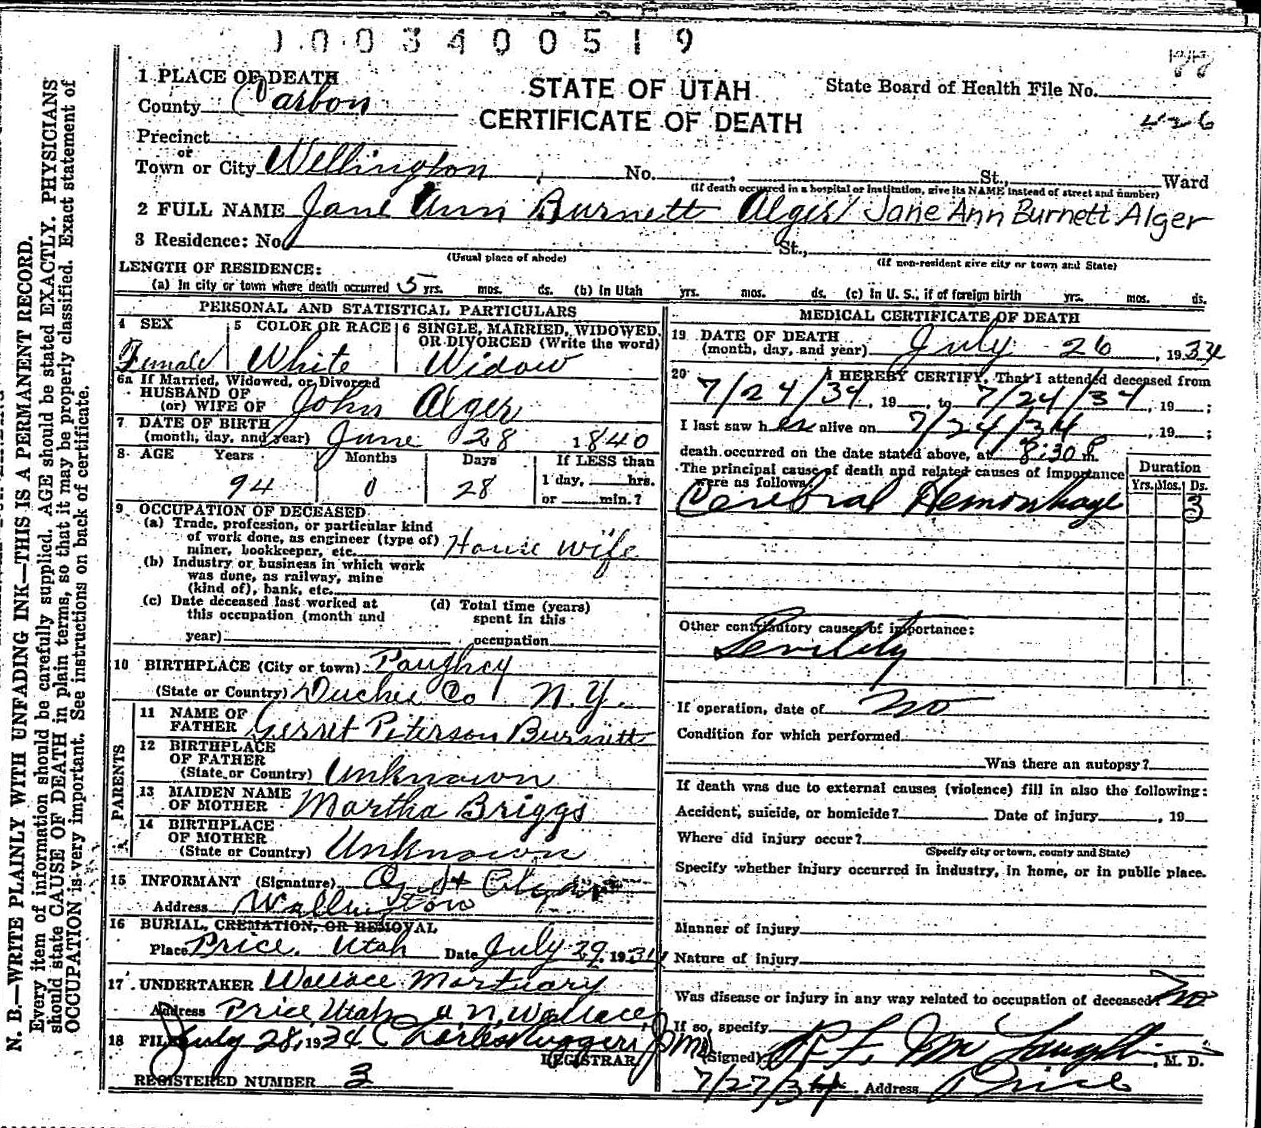 1003400519
77
1 PLACE OF DEATH
County Carbon
STATE OF UTAH
CERTIFICATE OF DEATH
State Board of Health File No.
226
Precinct
or
Town or City Wellington , No. , St., Ward
(If death occurred in a hospital or institution, give its NAME instead of street and number)
2 FULL NAME Jane Ann Burnett Alger / Jane Ann Burnett Alger
3 Residence: No. St.,
(Usual place of abode) (If non-resident give city or town and State)
LENGTH OF RESIDENCE:
(a) In city or town where death occurred 5 yrs. mos. ds. (b) in Utah yrs. mos. ds. (c) In U. S., if of foreign birth yrs. mos. ds.
PERSONAL AND STATISTICAL PARTICULARS
4 SEX 5 COLOR OR RACE 6 SINGLE, MARRIED, WIDOWED, OR DIVORCED (Write the word)
Female White Widow
6a If Married, Widowed, or Divorced
HUSBAND OF
(or) WIFE OF John Alger
7 DATE OF BIRTH
(month, day, and year) June 28 1840
8 AGE Years Months Days If LESS than
1 day, hrs.
94 0 28 or min.?
9 OCCUPATION OF DECEASED
(a) Trade, profession, or particular kind
of work done, as engineer (type of)
miner, bookkeeper, etc. House wife
(b) Industry or business in which work
was done, as railway, mine
(kind of), bank, etc.
(c) Date deceased last worked at
this occupation (month and
year)
(d) Total time (years)
spent in this
occupation
10 BIRTHPLACE (City or town) Paughcy
(State or Country) Duches Co N.Y.
PARENTS
11 NAME OF
FATHER Gerret Peterson Burnett
12 BIRTHPLACE
OF FATHER
(State or Country) Unknown
13 MAIDEN NAME
OF MOTHER Martha Briggs
14 BIRTHPLACE
OF MOTHER
(State or Country) Unknown
15 INFORMANT (Signature)
Address Wellington
16 BURIAL, CREMATION, OR REMOVAL
Place Price, Utah Date July 29, 1934
17 UNDERTAKER Wallace Mortuary
Address Price, Utah a. N. Wallace
18 FILED July 28, 1934 Charles Ruggeri Jr MD
REGISTRAR
REGISTERED NUMBER 3
MEDICAL CERTIFICATE OF DEATH
19 DATE OF DEATH
(month, day, and year) July 26 , 1934
20 I HEREBY CERTIFY, That I attended deceased from
7/24/34, 19 , to 7/24/34, 19 ;
I last saw her alive on 7/24/34, 19 ;
death occurred on the date stated above, at 8:30 P
The principal cause of death and related causes of importance
were as follows:
Duration
Yrs. Mos. Ds.
Cerebral Hemorrhage 3
Other contributory causes of importance:
Senility
If operation, date of no
Condition for which performed
Was there an autopsy?
If death was due to external causes (violence) fill in also the following:
Accident, suicide, or homicide? Date of injury , 19
Where did injury occur?
(Specify city or town, county and State)
Specify whether injury occurred in industry, in home, or in public place.
Manner of injury
Nature of injury
Was disease or injury in any way related to occupation of deceased? no
If so, specify
(Signed) R. F. McLaughlin, M. D.
7/27/34 Address Price
N. B.—WRITE PLAINLY WITH UNFADING INK—THIS IS A PERMANENT RECORD.
Every item of information should be carefully supplied. AGE should be stated EXACTLY. PHYSICIANS
should state CAUSE OF DEATH in plain terms, so that it may be properly classified. Exact statement of
OCCUPATION is very important. See instructions on back of certificate.